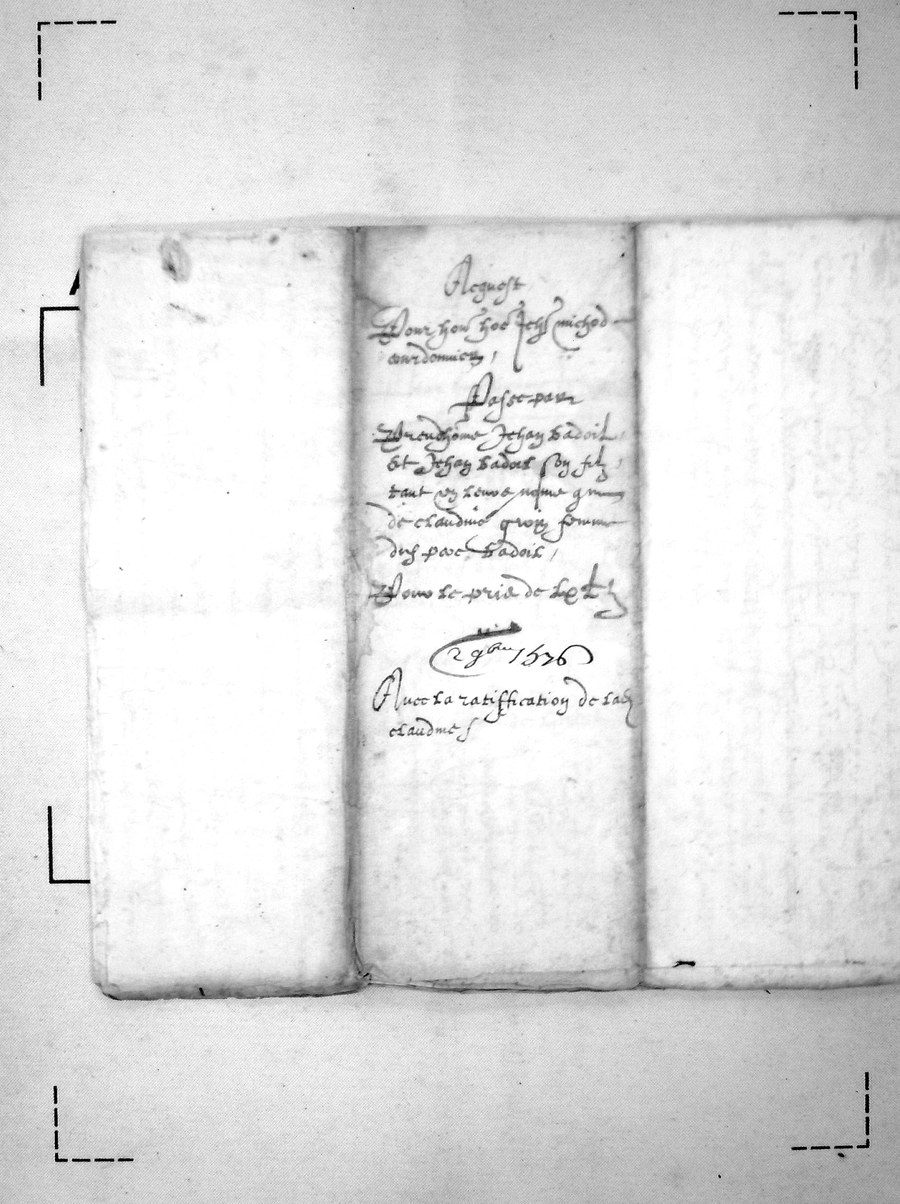 Acquest
Pour hon hoe Jehs michod
courdonnier,
Passee par
Preudhome Jehan badoil
Et Jehan badoil son filz
tant en leurs
de claudine femme
dud badoil,
Pour le pris de lx
29 1576
Avec la ratiffication de lad
claudine